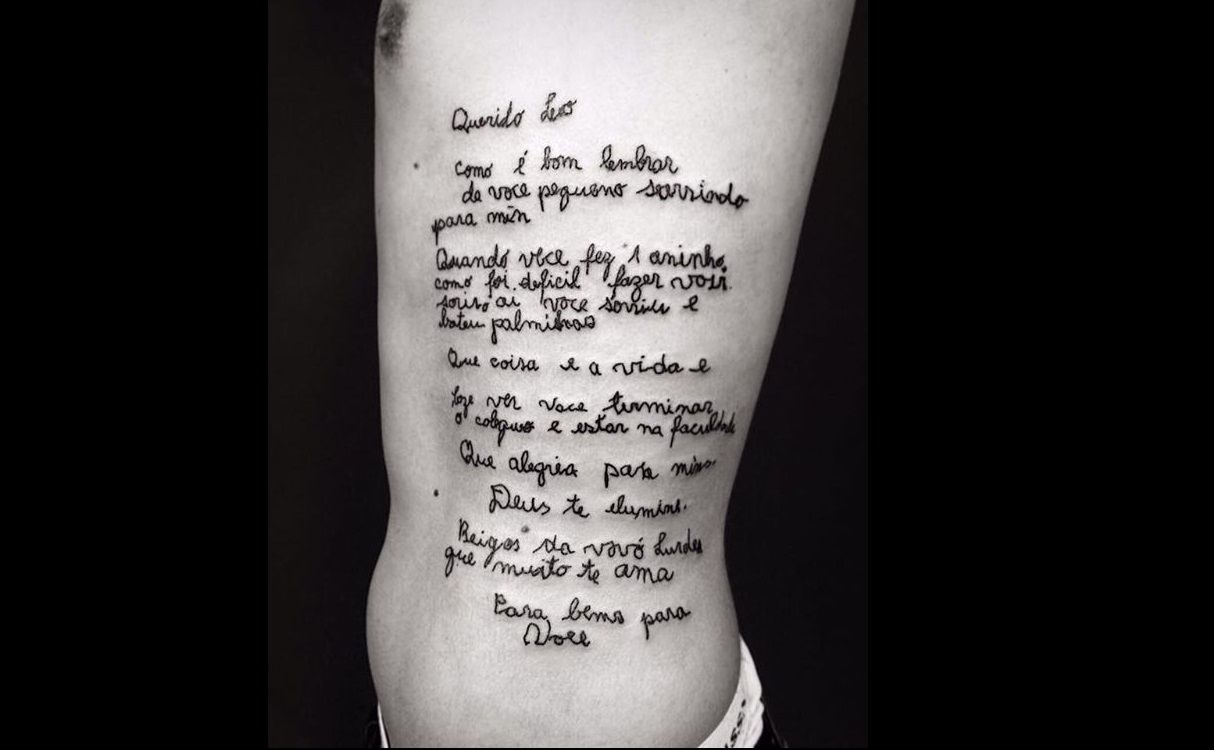 Querido Leo
como é bom lembrar
de voce pequeno sorrindo
para min
Quando voce fez 1 aninho
como foi deficil fazer voir
soriso ai voce sorriu e
bateu palminhas
Que coisa e a vida e
hoze ver voce terminar
o coleguo e estar na faculdade
Que alegria para mim
Deus te elumine.
Beigos da vovó Lurdes
que muito te ama
Para bems para
Voce